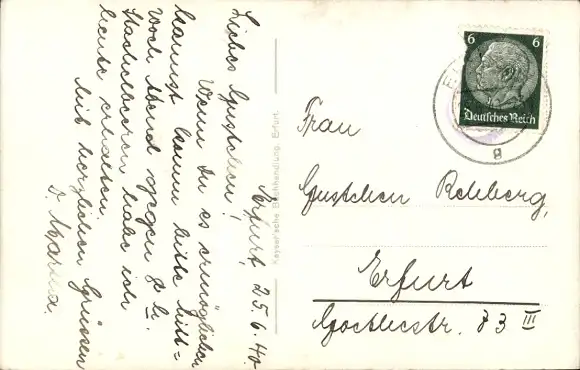 Erfurt, 25.6.40.
Liebes Gustchen!
Wenn Du es ermöglichen
kannst komm bitte Mitt=
woch Abend gegen 8 h.
Stachelbeeren habe ich
heute erhalten.
Mit herzlichen Grüssen
D. Martha.
Kayser'sche Buchhandlung, Erfurt.
6 6
Deutsches Reich
g
Frau
Gustchen Rehberg,
Erfurt
Goethestr. 73 III